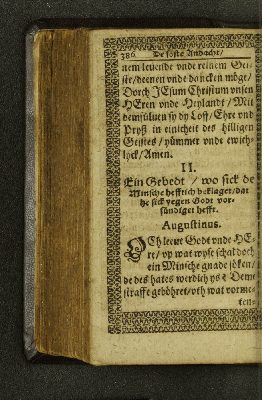 386 De söste Andacht/
nem leuende vnde reinem Gei-
ste/deenen vnde dancken möge/
Dorch JEsum Christum vnsen
HEren vnde Heylandt/Mit
demsüluen sy dy Loff/Ehre vnd
Pryß in einicheit des hilligen
Geistes/ yümmer vnde ewich-
lyck/Amen.
II.
Ein Gebedt / wo sick de
Minsche hefftich beklaget/dat
he sick yegen Godt vor-
sündiget hefft.
Augustinus.
OCh leeue Godt vnde HE-
re/ vp wat wyse schal doch
ein Minsche gnade söken/
de des hates werdich ys? Deme
straffe geböhret/vth wat vorme-
ten-